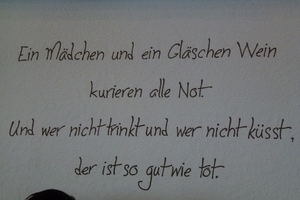 Ein Mädchen und ein Gläschen Wein
kurieren alle Not.
Und wer nicht trinkt und wer nicht küsst,
der ist so gut wie tot.